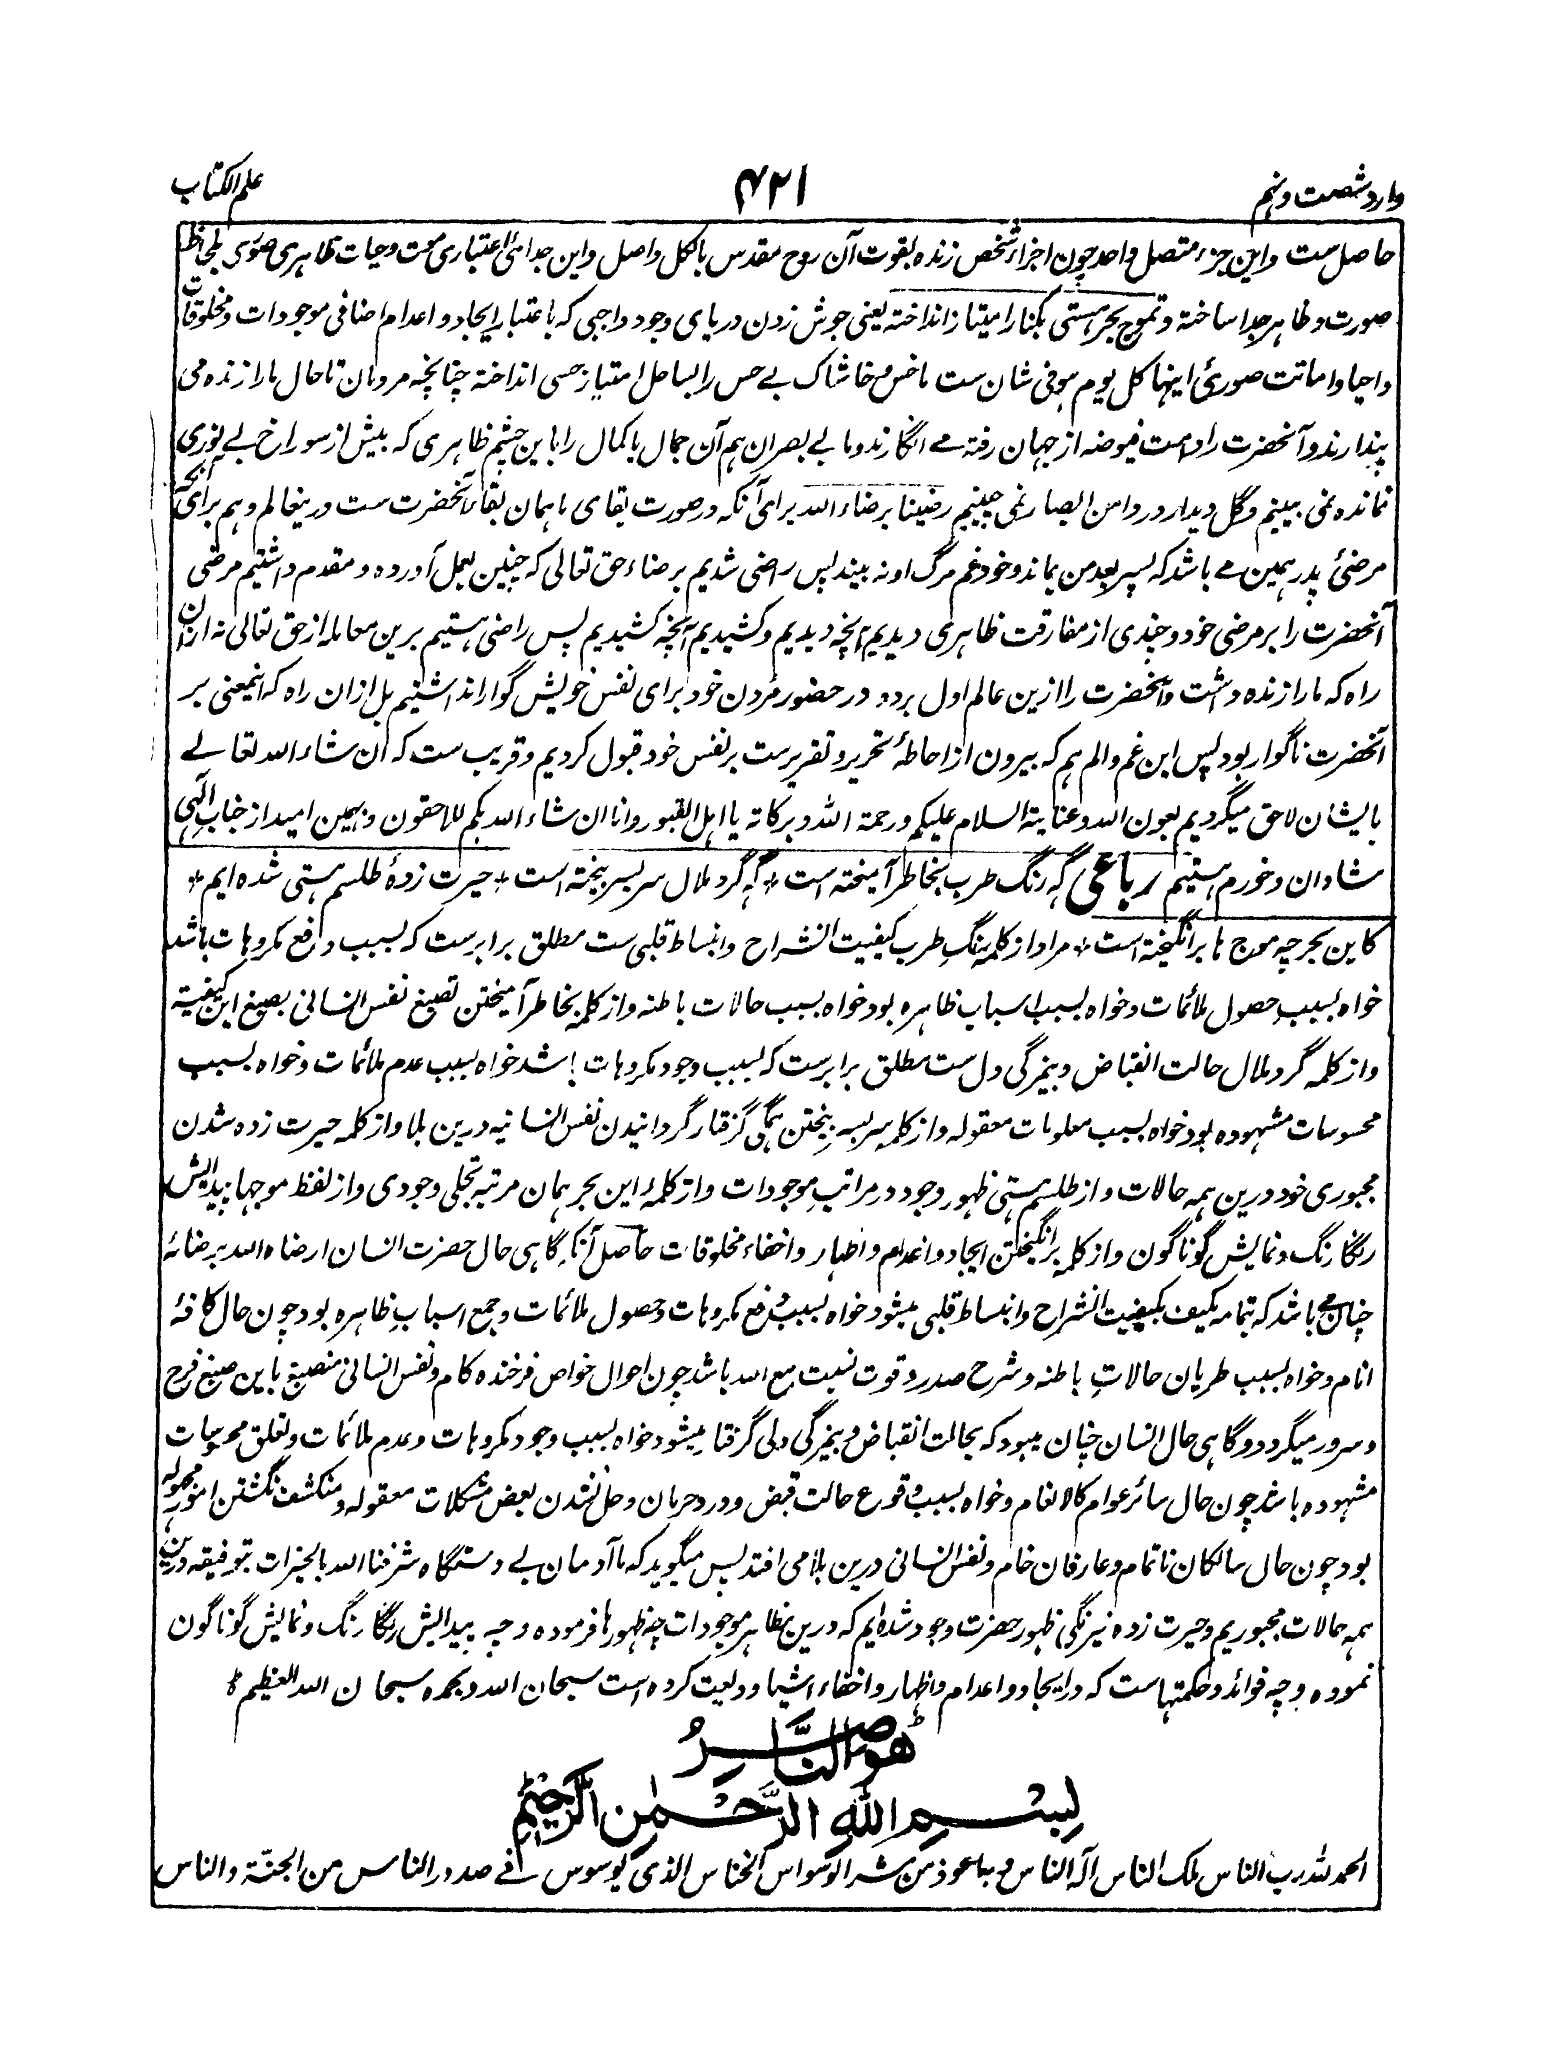 وارد شصت و نهم
۴۲۱
علم الکتاب
حاصل ست و این جزء متصل واحد چون اجزاء شخص زنده بقوت آن روح مقدس بالکل واصل و این جدائی اعتباری موت و حیات ظاهری صوری بلحاظ
صورت و ظاهر جدا ساخته و تموج بحر هستی بکنار امتیاز انداخته یعنی جوش زدن دریای وجود واجبی که باعتبار ایجاد و اعدام اضافی موجودات و مخلوقات
و احیا و اماتت صوریٔ اینها کل یوم هو فی شان ست ما خس و خاشاک بے حس را بساحل امتیاز حسی انداخته چنانچه مردمان تا حال ما را زنده می
پندارند و آنحضرت را دامت فیوضه از جهان رفته مے انگارند و ما بے بصران هم آن جمال باکمال را باین چشم ظاهری که بیش از سوراخ بے نوری
نمانده نمی بینیم و گل دیدار در دامن ابصار نمی چینیم رضینا برضاء الله برای آنکه در صورت بقای ما همان بقاء آنحضرت ست درینعالم و هم برای آنکه
مرضیٔ پدر همین مے باشد که پسر بعد من بماند و خود غم مرگ او نه بیند پس راضی شدیم برضاء حق تعالی که چنین بعمل آورده و مقدم داشتیم مرضی
آنحضرت را بر مرضی خود و چندی از مفارقت ظاهری دیدیم آنچه دیدیم و کشیدیم آنچه کشیدیم پس راضی هستیم برین معامله از حق تعالی نه ازان
راه که ما را زنده داشت و آنحضرت را ازین عالم اول برد و در حضور مردن خود برای نفس خویش گوارا نداشتیم بل ازان راه که اینمعنی بر
آنحضرت ناگوار بود پس این غم و الم هم که بیرون از احاطهٔ تحریر و تقریرست بر نفس خود قبول کردیم و قریب ست که ان شاء الله تعالے
بایشان لاحق میگردیم بعون الله و عنایته السلام علیکم و رحمة الله و برکاته یا اهل القبور و انا ان شاء الله بکم للاحقون و بهمین امید از جناب الٰهی
شادان و خورم هستیم رباعی گه رنگ طرب بخاطر آمیخته است * گه گرد ملال سربسر بیخته است * حیرت زدهٔ طلسم هستی شده ایم *
کاین بحر چه موج ها برانگیخته است * مراد از کلمه رنگ طرب کیفیت انشراح و انبساط قلبی ست مطلق برابرست که بسبب دفع مکروهات باشد
خواه بسبب حصول ملائمات و خواه بسبب اسباب ظاهره بود خواه بسبب حالات باطنه و از کلمه بخاطر آمیختن تصبغ نفس انسانی بصبغ این کیفیة
و از کلمه گرد ملال حالت انقباض و بیمزگی دل ست مطلق برابرست که بسبب وجود مکروهات باشد خواه بسبب عدم ملائمات و خواه بسبب
محسوسات مشهوده بود خواه بسبب معلومات معقوله و از کلمه سربسر بیختن بهمگی گرفتار گردانیدن نفس انسانیه درین بلا و از کلمه حیرت زده شدن
مجبوری خود درین همه حالات و از طلسم هستی ظهور وجود در مراتب موجودات و از کلمهٔ این بحر همان مرتبه تجلی وجودی و از لفظ موجها پیدایش
رنگارنگ و نمایش گوناگون و از کلمه برانگیختن ایجاد و اعدام و اظهار و اخفاء مخلوقات حاصل آنکه گاهی حال حضرت انسان ارضاه الله برضائهٔ
چنان مے باشد که بتمامه مکیف بکیفیت انشراح و انبساط قلبی میشود خواه بسبب دفع مکروهات و حصول ملائمات و جمع اسباب ظاهره بود چون حال کافهٔ
انام و خواه بسبب طریان حالات باطنه و شرح صدر و قوت نسبت مع الله باشد چون احوال خواص فرخنده کام و نفس انسانی منصبغ باین صبغ فرح
و سرور میگردد و گاهی حال انسان چنان میبود که بحالت انقباض و بیمزگی دلی گرفتار میشود خواه بسبب وجود مکروهات و عدم ملائمات و تعلق محسوسات
مشهوده باشد چون حال سائر عوام کالانعام و خواه بسبب وقوع حالت قبض و درد حرمان و حل نشدن بعض مشکلات معقوله و منکشف نگشتن امور مجهوله
بود چون حال سالکان ناتمام و عارفان خام و نفس انسانی درین بلا می افتد پس میگوید که ما آدمان بے دستگاه شرفنا الله بالخیرات بتوفیقه درین
همه حالات مجبوریم و حیرت زده نیرنگی ظهور حضرت وجود شده ایم که درین مظاهر موجودات چه ظهورها فرموده و چه پیدایش رنگا رنگ و نمایش گوناگون
نموده و چه فوائد و حکمتهاست که در ایجاد و اعدام و اظهار و اخفاء اشیا ودیعت کرده است سبحان الله و بحمده سبحان الله العظیم
هو الناصر
بسم الله الرحمن الرحیم
الحمد لله رب الناس ملک الناس اله الناس و به اعوذ من شر الوسواس الخناس الذی یوسوس فے صدور الناس من الجنة و الناس